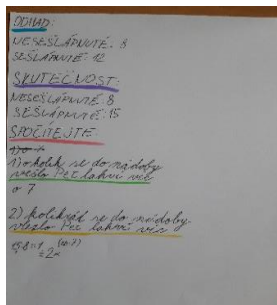 ODHAD:
NESEŠLÁPNUTÉ: 8
SEŠLÁPNUTÉ: 12
SKUTEČNOST:
NESEŠLÁPNUTÉ: 8
SEŠLÁPNUTÉ: 15
SPOČÍTEJTE:
1) o kolik se do nádoby
vešlo Pet lahví víc
o 7
2) kolikrát se do nádoby
vlezlo Pet lahví víc